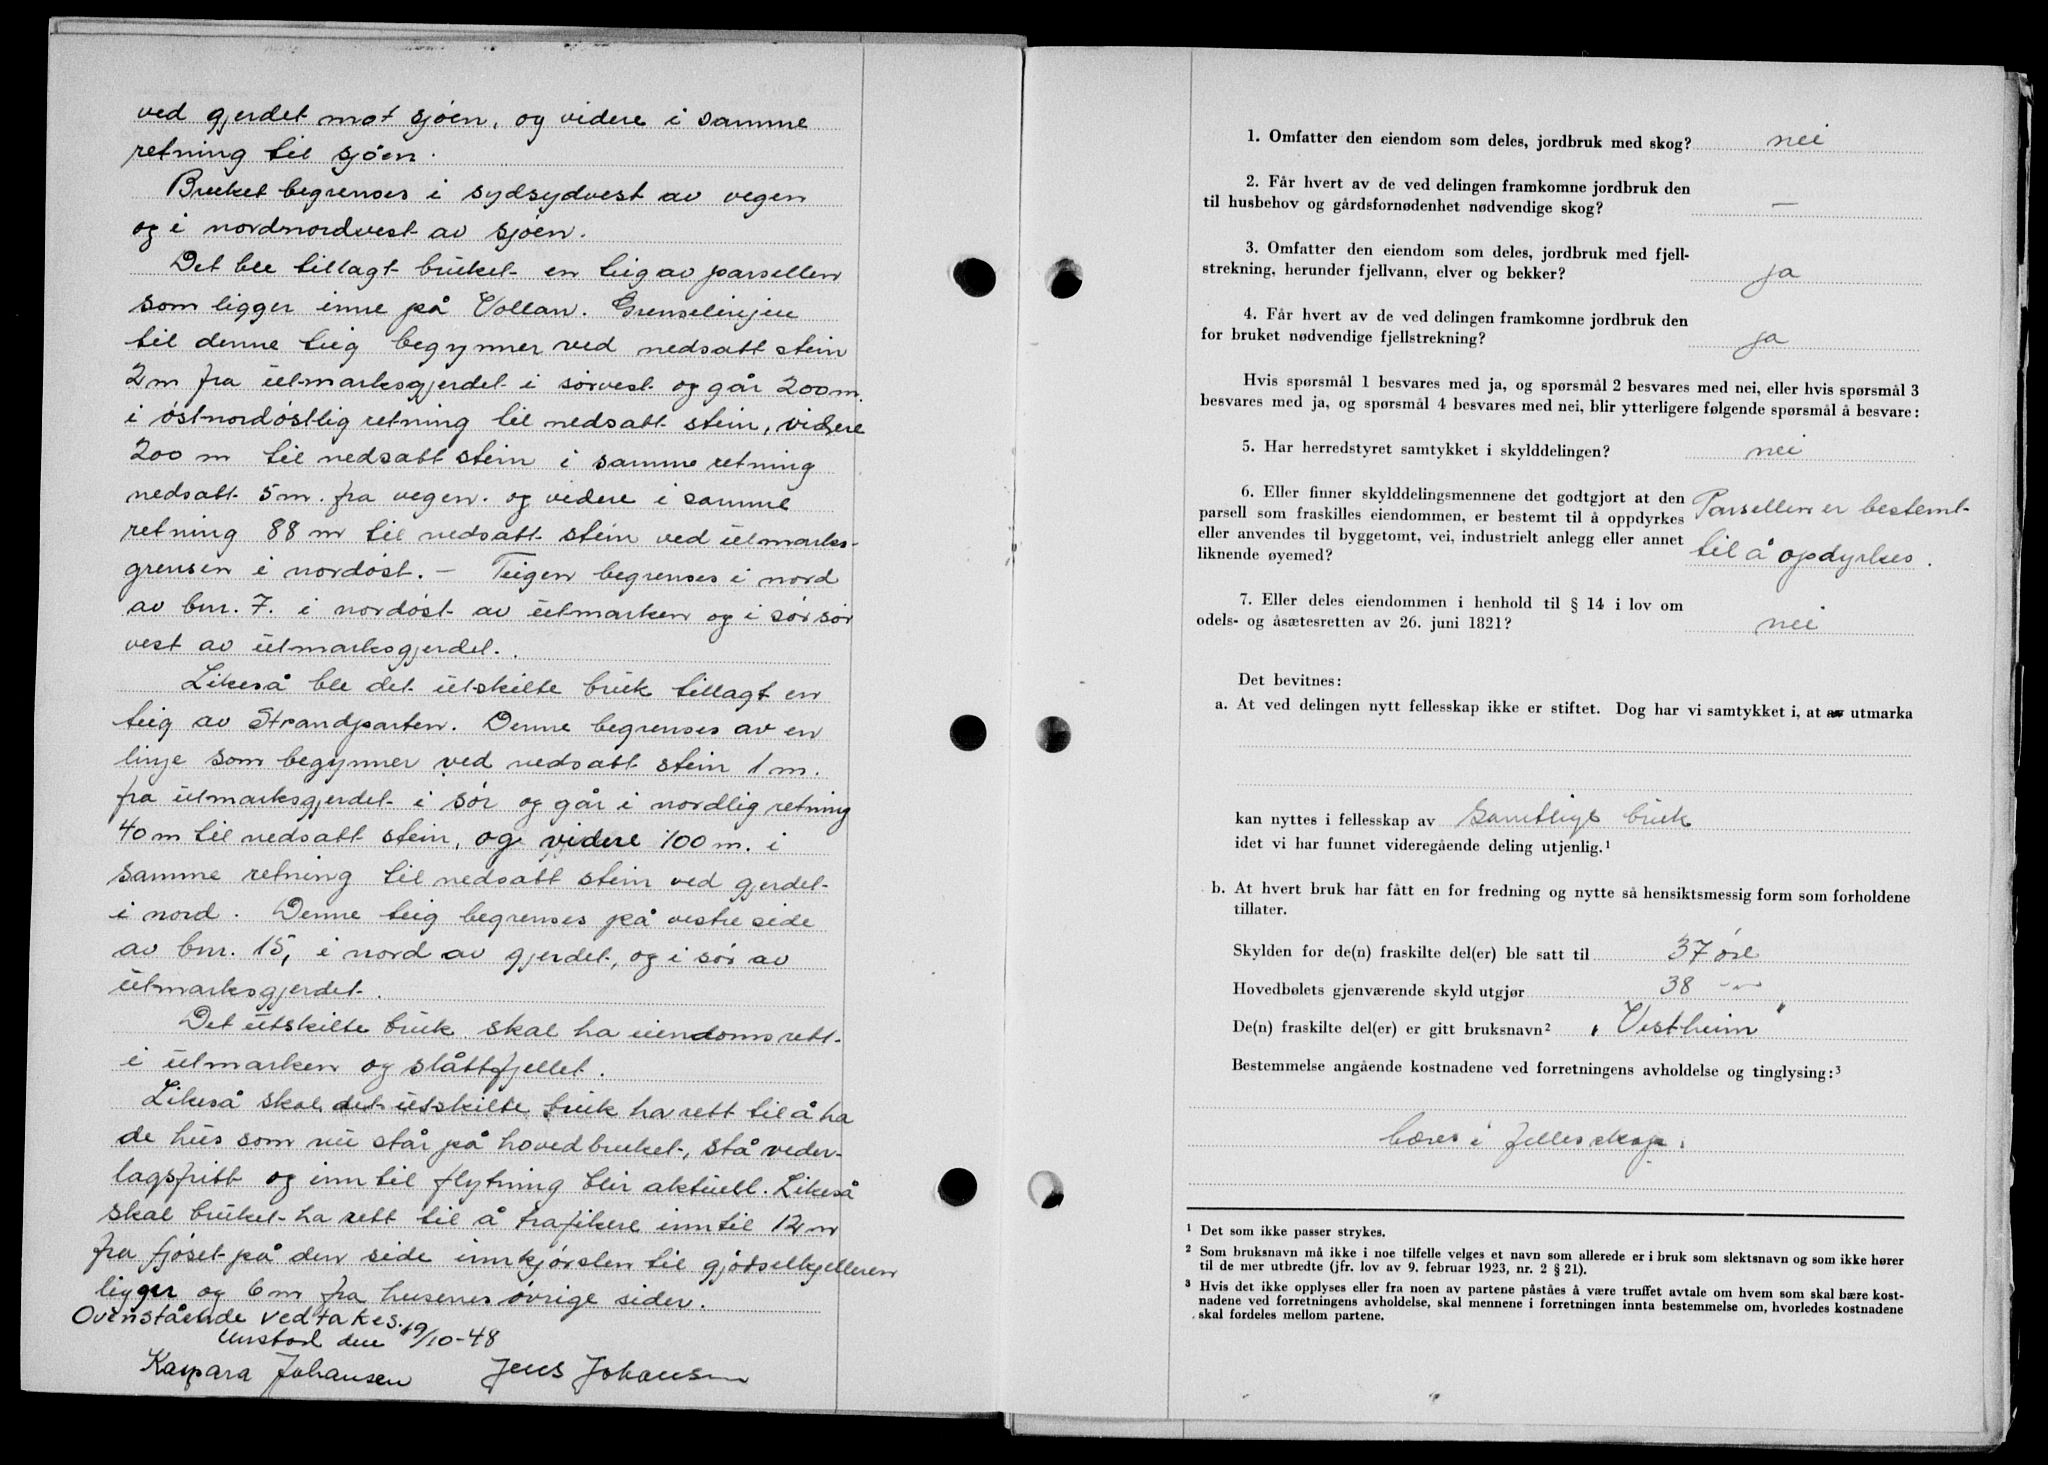 ved gjerdet mot sjøen, og videre i samme
retning til sjøen.
Bruket begrenses i sydsydvest av vegen
og i nordnordvest av sjøen.
Det ble tillagt bruket en teig av parsellen
som ligger inne på Vollan. Grenselinjen
til denne teig begynner ved nedsatt stein
2 m fra utmarksgjerdet i sørvest og går 200 m.
i østnordøstlig retning til nedsatt stein, videre
200 m til nedsatt stein i samme retning
nedsatt 5 m. fra vegen. og videre i samme
retning 88 m til nedsatt stein ved utmarks-
grensen i nordøst. — Teigen begrenses i nord
av bnr. 7. i nordøst av utmarken og i sør sør
vest av utmarksgjerdet.
Likeså ble det utskilte bruk tillagt en
teig av Strandparten. Denne begrenses av en
linje som begynner ved nedsatt stein 1 m.
fra utmarksgjerdet i sør og går i nordlig retning
40 m til nedsatt stein, og videre 100 m. i
samme retning til nedsatt stein ved gjerdet
i nord. Denne teig begrenses på vestre side
av bnr. 15, i nord av gjerdet, og i sør av
utmarksgjerdet.
Det utskilte bruk skal ha eiendomsrett
i utmarken og slåttefjellet.
Likeså skal det utskilte bruk ha rett til å ha
de hus som nu står på hovedbruket, stå veder-
lagsfritt og inntil flytning blir aktuell. Likeså
skal bruket ha rett til å trafikere inntil 12 m
fra fjøset på den side innkjørslen til gjødselkjelleren
ligger og 6 m fra husenes øvrige sider.
Ovenstående vedtakes.
Unstad den 19/10-48
Kaspara Johansen Jens Johansen
1. Omfatter den eiendom som deles, jordbruk med skog? nei
2. Får hvert av de ved delingen framkomne jordbruk den
til husbehov og gårdsfornødenhet nødvendige skog? —
3. Omfatter den eiendom som deles, jordbruk med fjell-
strekning, herunder fjellvann, elver og bekker? ja
4. Får hvert av de ved delingen framkomne jordbruk den
for bruket nødvendige fjellstrekning? ja
Hvis spørsmål 1 besvares med ja, og spørsmål 2 besvares med nei, eller hvis spørsmål 3
besvares med ja, og spørsmål 4 besvares med nei, blir ytterligere følgende spørsmål å besvare:
5. Har herredstyret samtykket i skylddelingen? nei
6. Eller finner skylddelingsmennene det godtgjort at den
parsell som fraskilles eiendommen, er bestemt til å oppdyrkes Parsellen er bestemt
eller anvendes til byggetomt, vei, industrielt anlegg eller annet
liknende øyemed? til å opdyrkes.
7. Eller deles eiendommen i henhold til § 14 i lov om
odels- og åsætesretten av 26. juni 1821? nei
Det bevitnes:
a. At ved delingen nytt fellesskap ikke er stiftet. Dog har vi samtykket i, at av utmarka
kan nyttes i fellesskap av Samtlige bruk
idet vi har funnet videregående deling utjenlig.¹
b. At hvert bruk har fått en for fredning og nytte så hensiktsmessig form som forholdene
tillater.
Skylden for de(n) fraskilte del(er) ble satt til 37 øre
Hovedbølets gjenværende skyld utgjør 38 -"-
De(n) fraskilte del(er) er gitt bruksnavn² "Vestheim"
Bestemmelse angående kostnadene ved forretningens avholdelse og tinglysing:³
bæres i fellesskap.
¹ Det som ikke passer strykes.
² Som bruksnavn må ikke i noe tilfelle velges et navn som allerede er i bruk som slektsnavn og som ikke hører
til de mer utbredte (jfr. lov av 9. februar 1923, nr. 2 § 21).
³ Hvis det ikke opplyses eller fra noen av partene påståes å være truffet avtale om hvem som skal bære kost-
nadene ved forretningens avholdelse, skal mennene i forretningen innta bestemmelse om, hvorledes kostnadene
skal fordeles mellom partene.